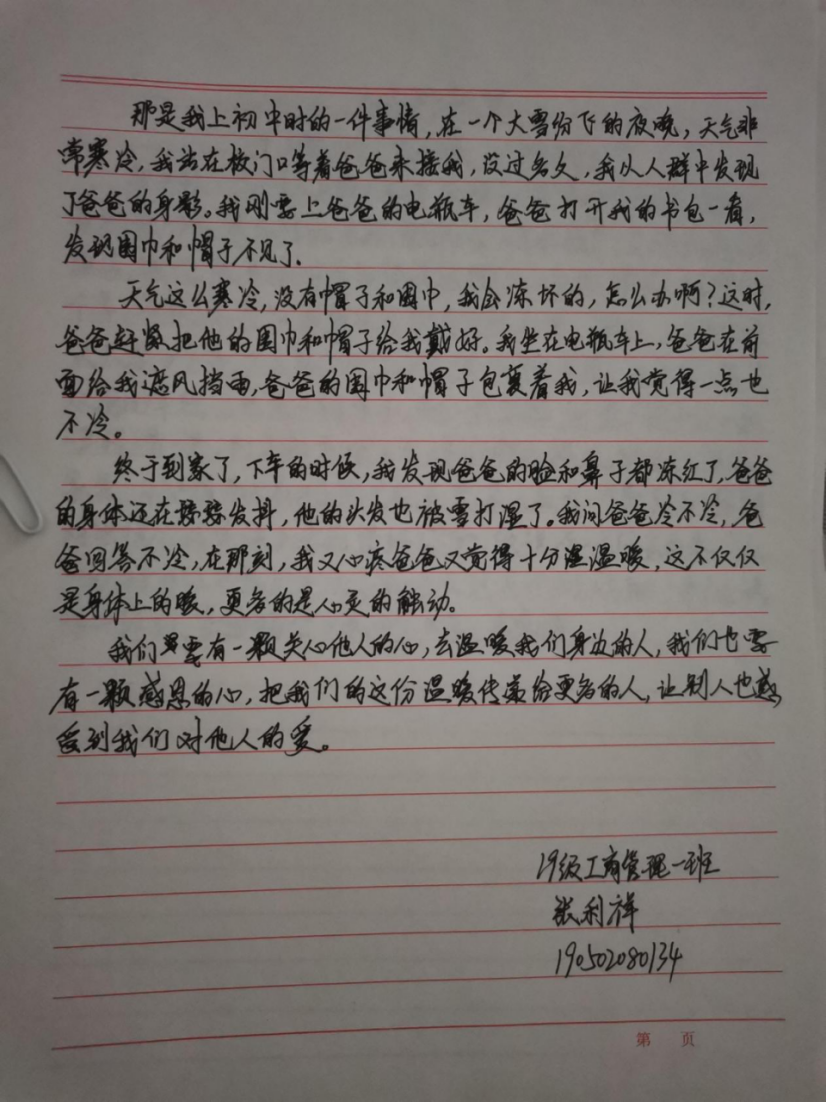 那是我上初中时的一件事情,在一个大雪纷飞的夜晚,天气非
常寒冷,我站在校门口等着爸爸来接我,没过多久,我从人群中发现
了爸爸的身影。我刚要上爸爸的电瓶车,爸爸打开我的书包一看,
发现围巾和帽子不见了.
天气这么寒冷,没有帽子和围巾,我会冻坏的,怎么办啊?这时,
爸爸赶紧把他的围巾和帽子给我戴好。我坐在电瓶车上,爸爸在前
面给我遮风挡雨,爸爸的围巾和帽子包裹着我,让我觉得一点也
不冷。
终于到家了,下车的时候,我发现爸爸的脸和鼻子都冻红了,爸爸
的身体还在瑟瑟发抖,他的头发也被雪打湿了。我问爸爸冷不冷,爸
爸回答不冷,在那刻,我又心疼爸爸又觉得十分温暖,这不仅仅
是身体上的暖,更多的是心灵的触动。
我们要有一颗关心他人的心,去温暖我们身边的人,我们也要
有一颗感恩的心,把我们的这份温暖传递给更多的人,让别人也感
受到我们对他人的爱。
19级工商管理一班
张利祥
190502080134
第 页